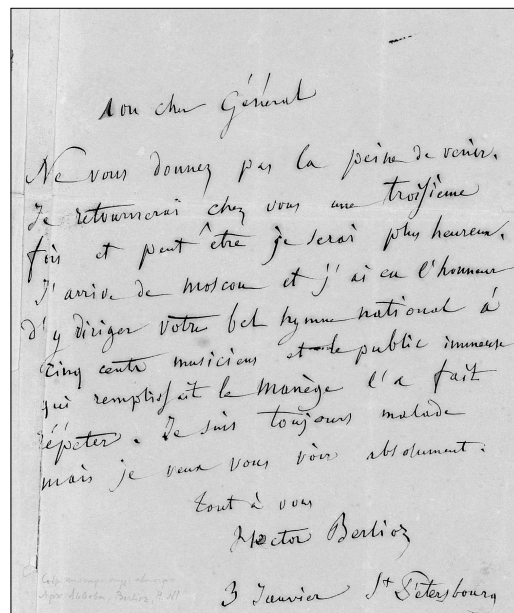 Mon cher Général
Ne vous donnez pas la peine de venir.
Je retournerai chez vous une troisième
fois et peut être je serai plus heureux.
J'arrive de Moscou et j'ai eu l'honneur
d'y diriger votre bel hymne national à
cinq cents musiciens et le public immense
qui remplissait le Manège l'a fait
répéter. Je suis toujours malade
mais je veux vous voir absolument.
tout à vous
Hector Berlioz
3 Janvier St Pétersbourg